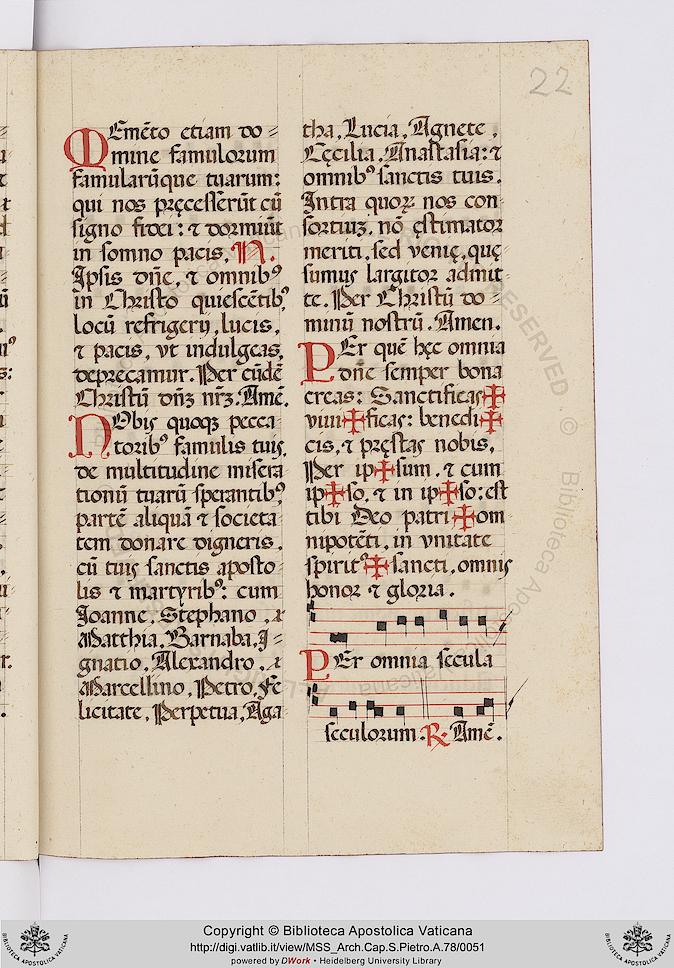 22
MEmēto etiam do-
mine famulorum
famularūque tuarum:
qui nos pręcesserūt cū
signo fidei: ⁊ dormiūt
in somno pacis. N.
Ipsis dn̄e, ⁊ omnibꝰ
in Christo quiescētibꝰ,
locū refrigerij, lucis,
⁊ pacis, vt indulgeas,
deprecamur. Per eūdē
Christū dn̄ꝫ nr̄ꝫ. Amē.
NObis quoqꝫ pecca
toribꝰ famulis tuis,
de multitudine misera
tionū tuarū sperantibꝰ,
partē aliquā ⁊ societa
tem donare digneris,
cū tuis sanctis aposto-
lis ⁊ martyribꝰ: cum
Joanne, Stephano, ⁊
Matthia, Barnaba, J-
gnatio, Alexandro, ⁊
Marcellino, Petro, Fe
licitate, Perpetua, Aga
tha, Lucia, Agnete,
Cęcilia, Anastasia: ⁊
omnibꝰ sanctis tuis.
Intra quoꝝ nos con-
sortiuꝫ, nō ęstimator
meriti, sed venię, quę
sumus largitor admit-
te. Per Christū do-
minū nostrū. Amen.
PEr quē hęc omnia
dn̄e semper bona
creas: Sanctificas✠
viui✠ficas: benedi✠
cis, ⁊ pręstas nobis.
Per ip✠sum, ⁊ cum
ip✠so, ⁊ in ip✠so: est
tibi Deo patri✠om
nipotēti, in vnitate
spiritꝰ✠sancti, omnis
honor ⁊ gloria.
PEr omnia secula
seculorum. ℟. Amē.
Copyright © Biblioteca Apostolica Vaticana
http://digi.vatlib.it/view/MSS_Arch.Cap.S.Pietro.A.78/0051
powered by DWork • Heidelberg University Library
BIBLIOTECA APOSTOLICA VATICANA
BIBLIOTECA APOSTOLICA VATICANA